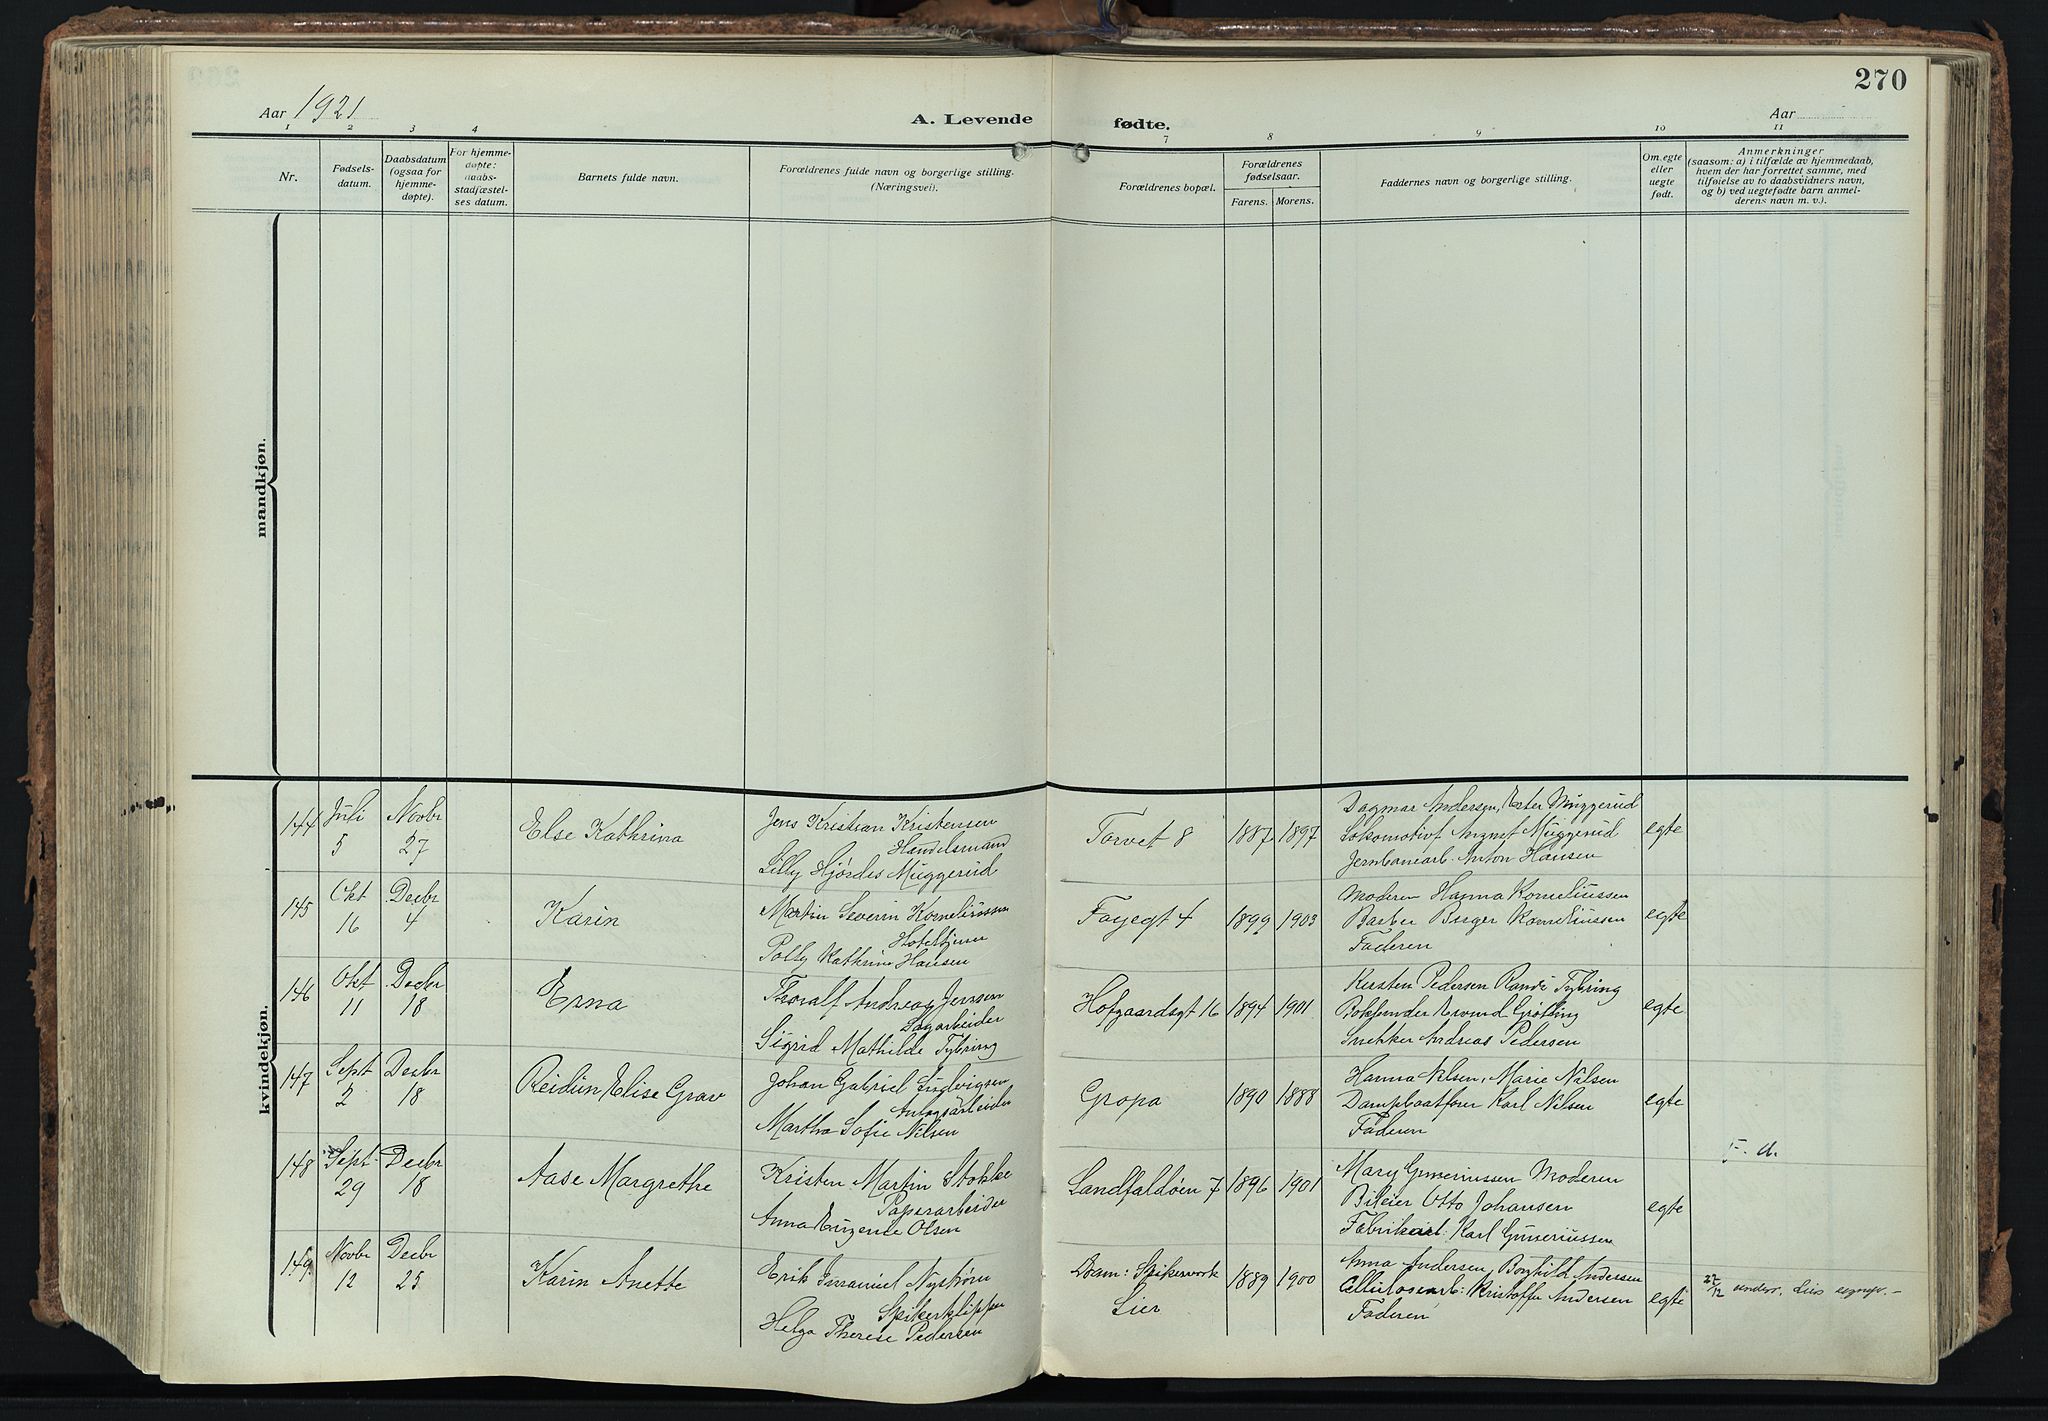 270
Aar 1921
A. Levende fødte.
Aar
1 2 3 4 7 8 9 10 11
Nr.
Fødsels-
datum.
Daabsdatum
(ogsaa for
hjemme-
døpte).
For hjemme-
døpte:
daabs-
stadfæstel-
ses datum.
Barnets fulde navn.
Forældrenes fulde navn og borgerlige stilling.
(Næringsvei).
Forældrenes bopæl.
Forældrenes
fødselsaar.
Farens. Morens.
Faddernes navn og borgerlige stilling.
Om egte
eller
uegte
født.
Anmerkninger
(saasom: a) i tilfælde av hjemmedaab,
hvem der har forrettet samme, med
tilføielse av to daabsvidners navn,
og b) ved uegtefødte barn anmel-
derens navn m. v.).
mandkjøn.
kvindekjøn.
144
Juli
5
Novbr
27
Else Kathrina
Jens Kristian Kristensen
Handelsmand
Lilly Hjørdis Muggerud
Torvet 8
1887 1897
Dagmar Andersen, Ester Muggerud
Lokomotivf August Muggerud
Jernbanearb. Anton Hansen
egte
145
Okt
16
Decbr
4
Karin
Martin Severin Korneliussen
Hotelstjener
Polly Kathrine Hansen
Fayegt 4
1899 1903
Moderen Hanna Korneliussen
Barber Birger Korneliussen
Faderen
egte
146
Okt
11
Decbr
18
Erna
Thoralf Andreas Jensen
Sagarbeider
Sigrid Mathilde Tybring
Hofgaardsgt 16
1894 1901
Kirsten Pedersen Randi Tybring
Bokbinder Grøtting
Snekker Andreas Pedersen
egte
147
Sept
2
Decbr
18
Reidun Elise Grav
Johan Gabriel Ludvigsen
Anlegsarbeider
Martha Sofie Nilsen
Gropa
1890 1888
Hanna Nilsen, Marie Nilsen
Dampbaatfører Karl Nilsen
Faderen
egte
148
Sept.
29
Decbr
18
Aase Margrethe
Kristen Martin Stokke
Papirarbeider
Anna Eugenie Olsen
Landfaldøen 7
1896 1901
Mary Guneriussen Moderen
Bileier Otto Johansen
Fabrikarb: Karl Guneriussen
egte
F. d.
149.
Novbr
12
Decbr
25
Karin Anette
Erik Emanuel Nystrøm
Spikerklipper
Helga Therese Pedersen
Dram: Spikerverk
Lier
1889 1900
Anna Andersen, Borghild Andersen
Cellulosearb: Kristoffer Andersen
Faderen
egte
22/12 underr. Lier sognepr. –